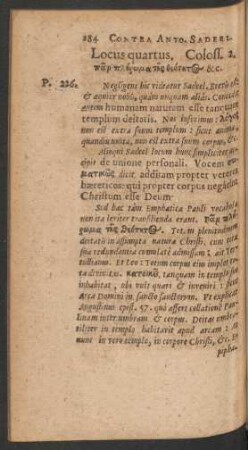 284 CONTRA ANTO. SADEEL.
Locus quartus. Coloss. 2.
πᾶν πλήρωμα τῆς θεότητος &c.
P. 226. Negligens hic videtur Sadeel.
& agnior nobis, quam unquam aliàs.
autem humanam naturam esse tanquam
templum deitatis. Nos inscimus: λόγος
non est extra suum templum: sicut anima
quandiu unita, non est extra suum corpus, &
Alioqui Sadeel locum hunc simpliciter
cipit de unione personali. Vocem
ματικῶς dicit additam propter veteres
hæreticos qui propter corpus negabant
Christum esse Deum.
Sed hac tam Emphatica Pauli vocabula
non ita leviter transilienda erant. Πᾶν πλή-
ρωμα τῆς θεότητος. Totam plenitudinem
deitatis in assumpta natura Christi, cum
sua redundantia cumulatè admissam: ait
Et Leo: Totum corpus eius implet
tota divinitas. κατοικεῖ, tanquam in templo suo
inhabitat, ubi vult quæri & inveniri: sicut
Arca Domini in sancto sanctorum. Ut explicat
Augustinus epist. 57. quò asserit collatione Pau-
linam inter umbram & corpus. Deitas umbra-
tiliter in templo habitavit apud arcam: at
nunc in vero templo, in corpore Christi, &c.